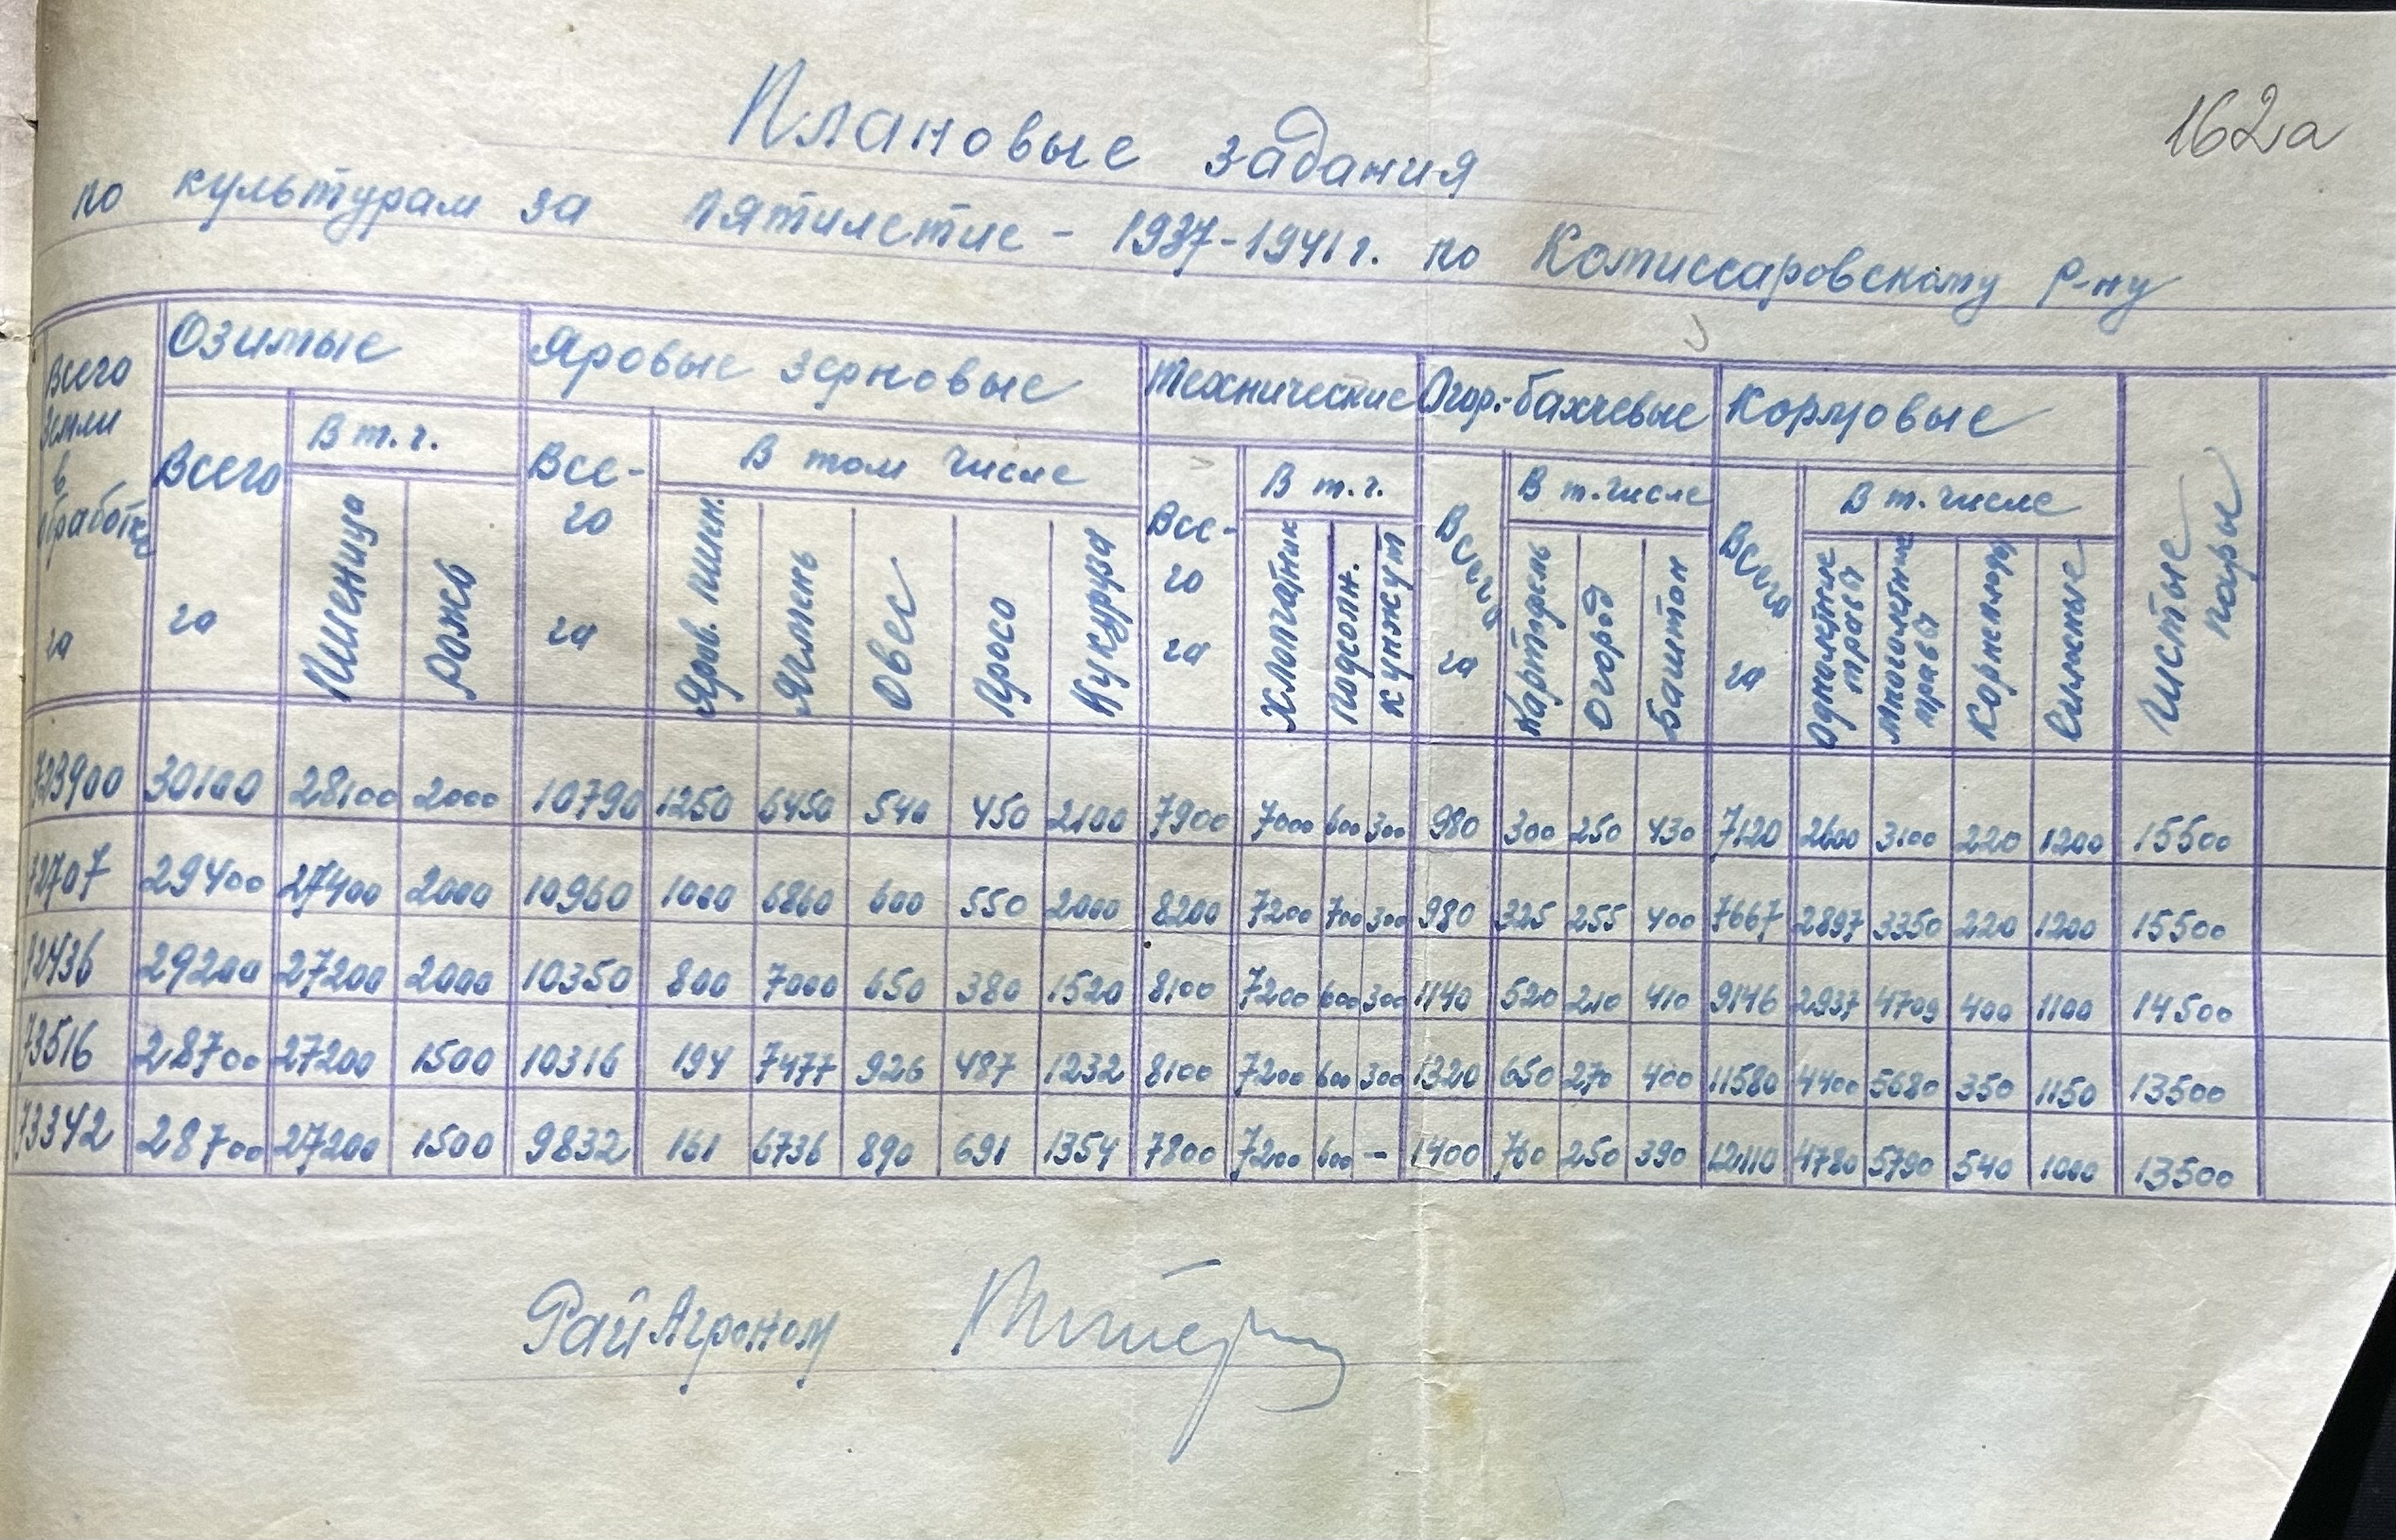 162а
Плановые задания
по культурам за пятилетие - 1937-1941 г. по Комиссаровскому р-ну
Всего земли в обработке га | Озимые | Яровые зерновые | Технические | Огор.-бахчевые | Кормовые | Чистые пары
Всего га | В т. ч. | Все-го га | В том числе | Все-го га | В т. ч. | Всего га | В т. числе | Всего га | В т. числе
Пшеница | Рожь | Яров. пшен. | Ячмень | Овес | Просо | Кукуруза | Хлопчатник | Подсолн. | Кунжут | Картофель | Огород | Баштан | Однолетние травы | Многолетние травы | Корнеплоды | Силосные
30100 | 28100 | 2000 | 10790 | 1250 | 6450 | 540 | 450 | 2100 | 7900 | 7000 | 600 | 300 | 980 | 300 | 250 | 430 | 7120 | 2600 | 3100 | 220 | 1200 | 15500
72707 | 29400 | 27400 | 2000 | 10960 | 1000 | 6860 | 600 | 550 | 2000 | 8200 | 7200 | 700 | 300 | 980 | 325 | 255 | 400 | 7667 | 2897 | 3350 | 220 | 1200 | 15500
72436 | 29200 | 27200 | 2000 | 10350 | 800 | 7000 | 650 | 380 | 1520 | 8100 | 7200 | 600 | 300 | 1140 | 520 | 210 | 410 | 9146 | 2937 | 4709 | 400 | 1100 | 14500
73516 | 28700 | 27200 | 1500 | 10316 | 194 | 7477 | 926 | 487 | 1232 | 8100 | 7200 | 600 | 300 | 1320 | 650 | 270 | 400 | 11580 | 4400 | 5680 | 350 | 1150 | 13500
73342 | 28700 | 27200 | 1500 | 9832 | 161 | 6736 | 890 | 691 | 1354 | 7800 | 7200 | 600 | - | 1400 | 760 | 250 | 390 | 12110 | 4780 | 5790 | 540 | 1000 | 13500
РайАгроном